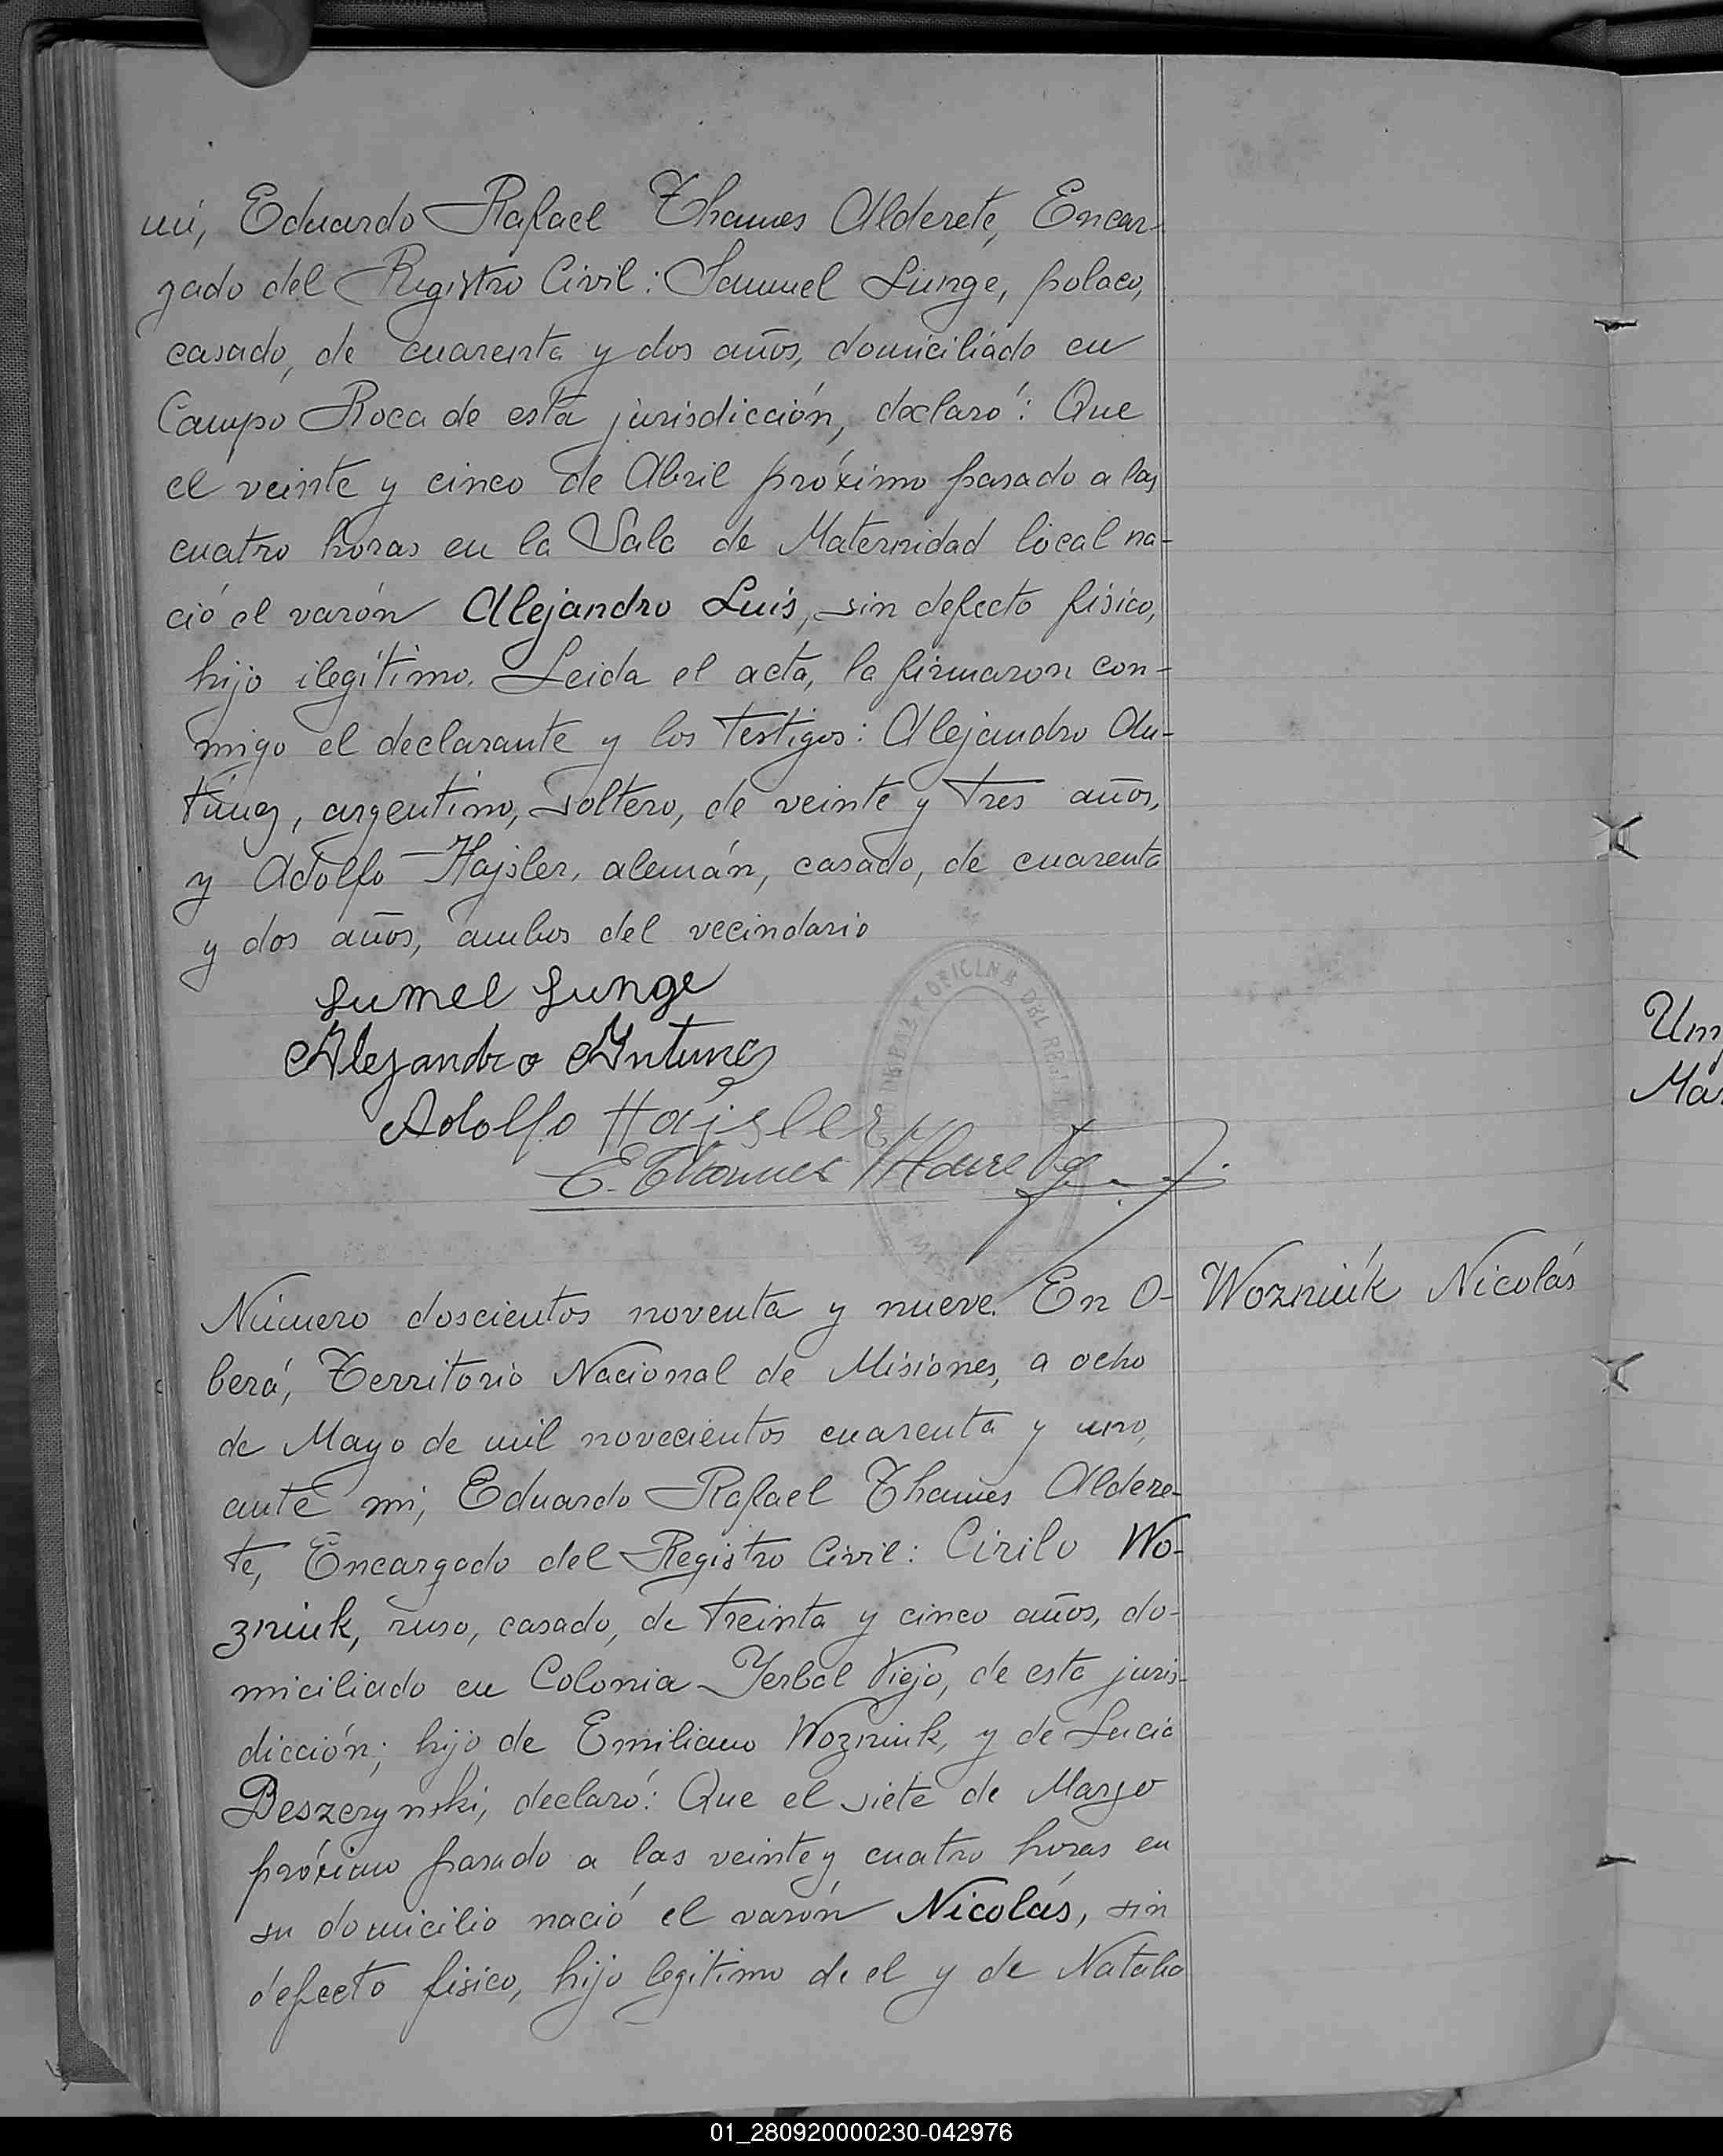 mí, Eduardo Rafael Thames Alderete, Encar-
gado del Registro Civil: Samuel Lunge, polaco,
casado, de cuarenta y dos años, domiciliado en
Campo Roca de esta jurisdicción, declaró: Que
el veinte y cinco de Abril próximo pasado a las
cuatro horas en la Sala de Maternidad local na-
ció el varón Alejandro Luis, sin defecto físico,
hijo ilegítimo. Leida el acta, la firmaron con-
migo el declarante y los testigos: Alejandro An-
túnez, argentino, soltero, de veinte y tres años,
y Adolfo Hajsler, alemán, casado, de cuarenta
y dos años, ambos del vecindario
Sumel Lunge
Alejandro Antunez
Adolfo Hajsler
E. Thames Alderete
Número doscientos noventa y nueve. En O-
berá, Territorio Nacional de Misiones, a ocho
de Mayo de mil novecientos cuarenta y uno,
ante mí, Eduardo Rafael Thames Aldere-
te, Encargado del Registro Civil: Cirilo Wo-
zniuk, ruso, casado, de treinta y cinco años, do-
miciliado en Colonia Yerbal Viejo, de esta juris-
dicción; hijo de Emiliano Wozniuk, y de Lucia
Beszczynski, declaró: Que el siete de Marzo
próximo pasado a las veinte y cuatro horas en
su domicilio nació el varón Nicolás, sin
defecto físico, hijo legítimo de el y de Natalia
Wozniuk Nicolás
OFICINA DEL
Um
Mar
01_280920000230-042976